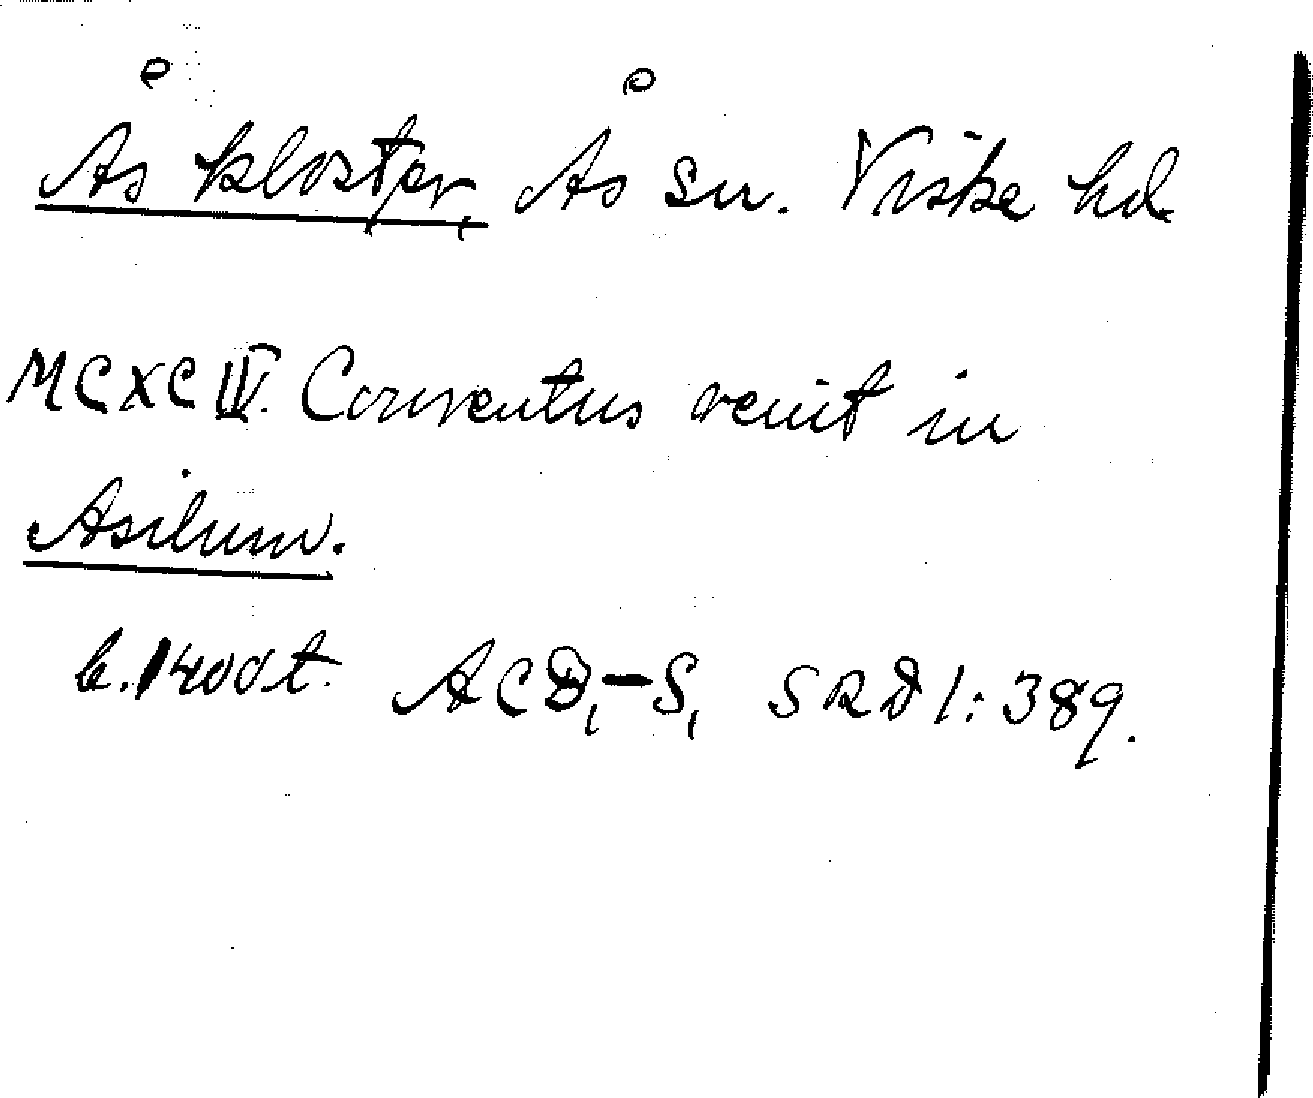 Ås kloster, Ås sn. Viske hd.
MCXCIV. Conventus venit in
Asilum.
b. 1400 t. ACD,-S, SRD 1:389.